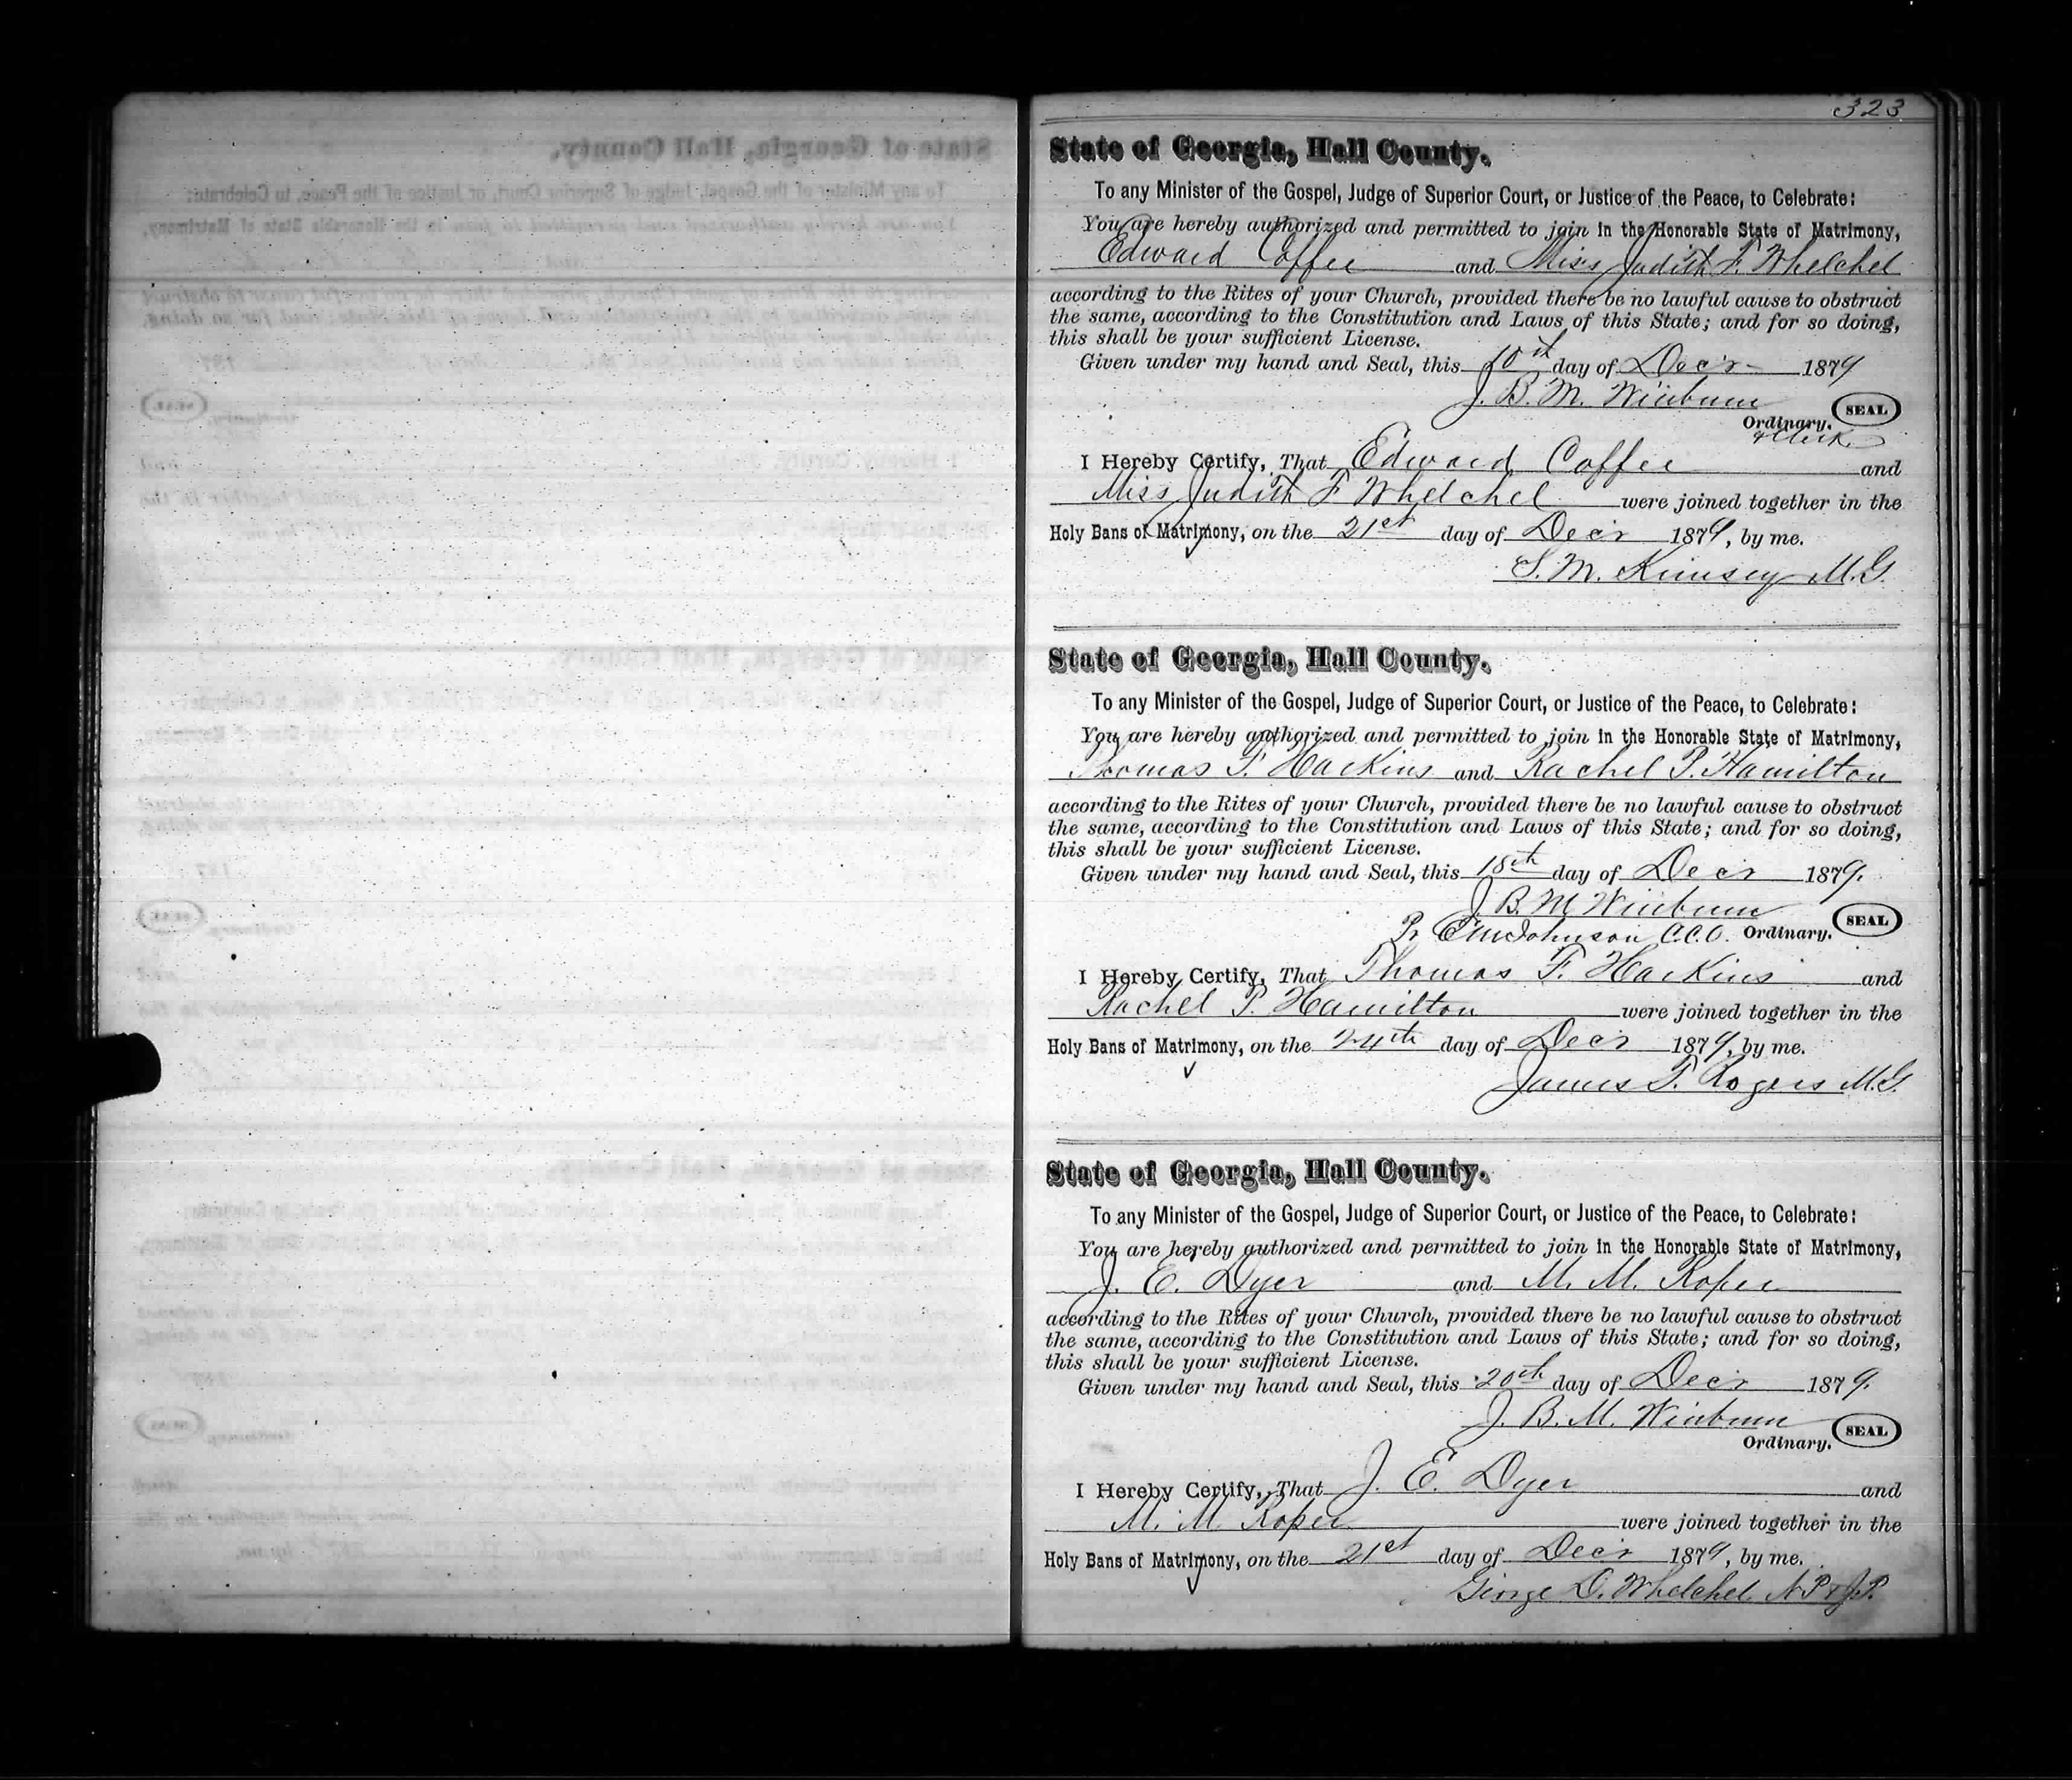 323
State of Georgia, Hall County.
To any Minister of the Gospel, Judge of Superior Court, or Justice of the Peace, to Celebrate:
You are hereby authorized and permitted to join in the Honorable State of Matrimony,
Edward Coffee and Miss Judith F. Whelchel
according to the Rites of your Church, provided there be no lawful cause to obstruct
the same, according to the Constitution and Laws of this State; and for so doing,
this shall be your sufficient License.
Given under my hand and Seal, this 10th day of Decr 1879
J. B. M. Winburn
Ordinary. SEAL
& Clerk
I Hereby Certify, That Edward Coffee and
Miss Judith F Whelchel were joined together in the
Holy Bans of Matrimony, on the 21st day of Decr 1879, by me.
S. M. Kimsey M.G.
State of Georgia, Hall County.
To any Minister of the Gospel, Judge of Superior Court, or Justice of the Peace, to Celebrate:
You are hereby authorized and permitted to join in the Honorable State of Matrimony,
Thomas F. Harkins and Rachel P. Hamilton
according to the Rites of your Church, provided there be no lawful cause to obstruct
the same, according to the Constitution and Laws of this State; and for so doing,
this shall be your sufficient License.
Given under my hand and Seal, this 18th day of Decr 1879.
J. B. M Winburn
Pr E M Johnson C.C.O. Ordinary. SEAL
I Hereby Certify, That Thomas F. Harkins and
Rachel P. Hamilton were joined together in the
Holy Bans of Matrimony, on the 24th day of Decr 1879, by me.
James T. Rogers M.G.
State of Georgia, Hall County.
To any Minister of the Gospel, Judge of Superior Court, or Justice of the Peace, to Celebrate:
You are hereby authorized and permitted to join in the Honorable State of Matrimony,
J. E. Dyer and M. M. Roper
according to the Rites of your Church, provided there be no lawful cause to obstruct
the same, according to the Constitution and Laws of this State; and for so doing,
this shall be your sufficient License.
Given under my hand and Seal, this 20th day of Decr 1879.
J. B. M. Winburn
Ordinary. SEAL
I Hereby Certify, That J. E. Dyer and
M. M. Roper were joined together in the
Holy Bans of Matrimony, on the 21st day of Decr 1879, by me.
George D. Whelchel N.P. & J.P.